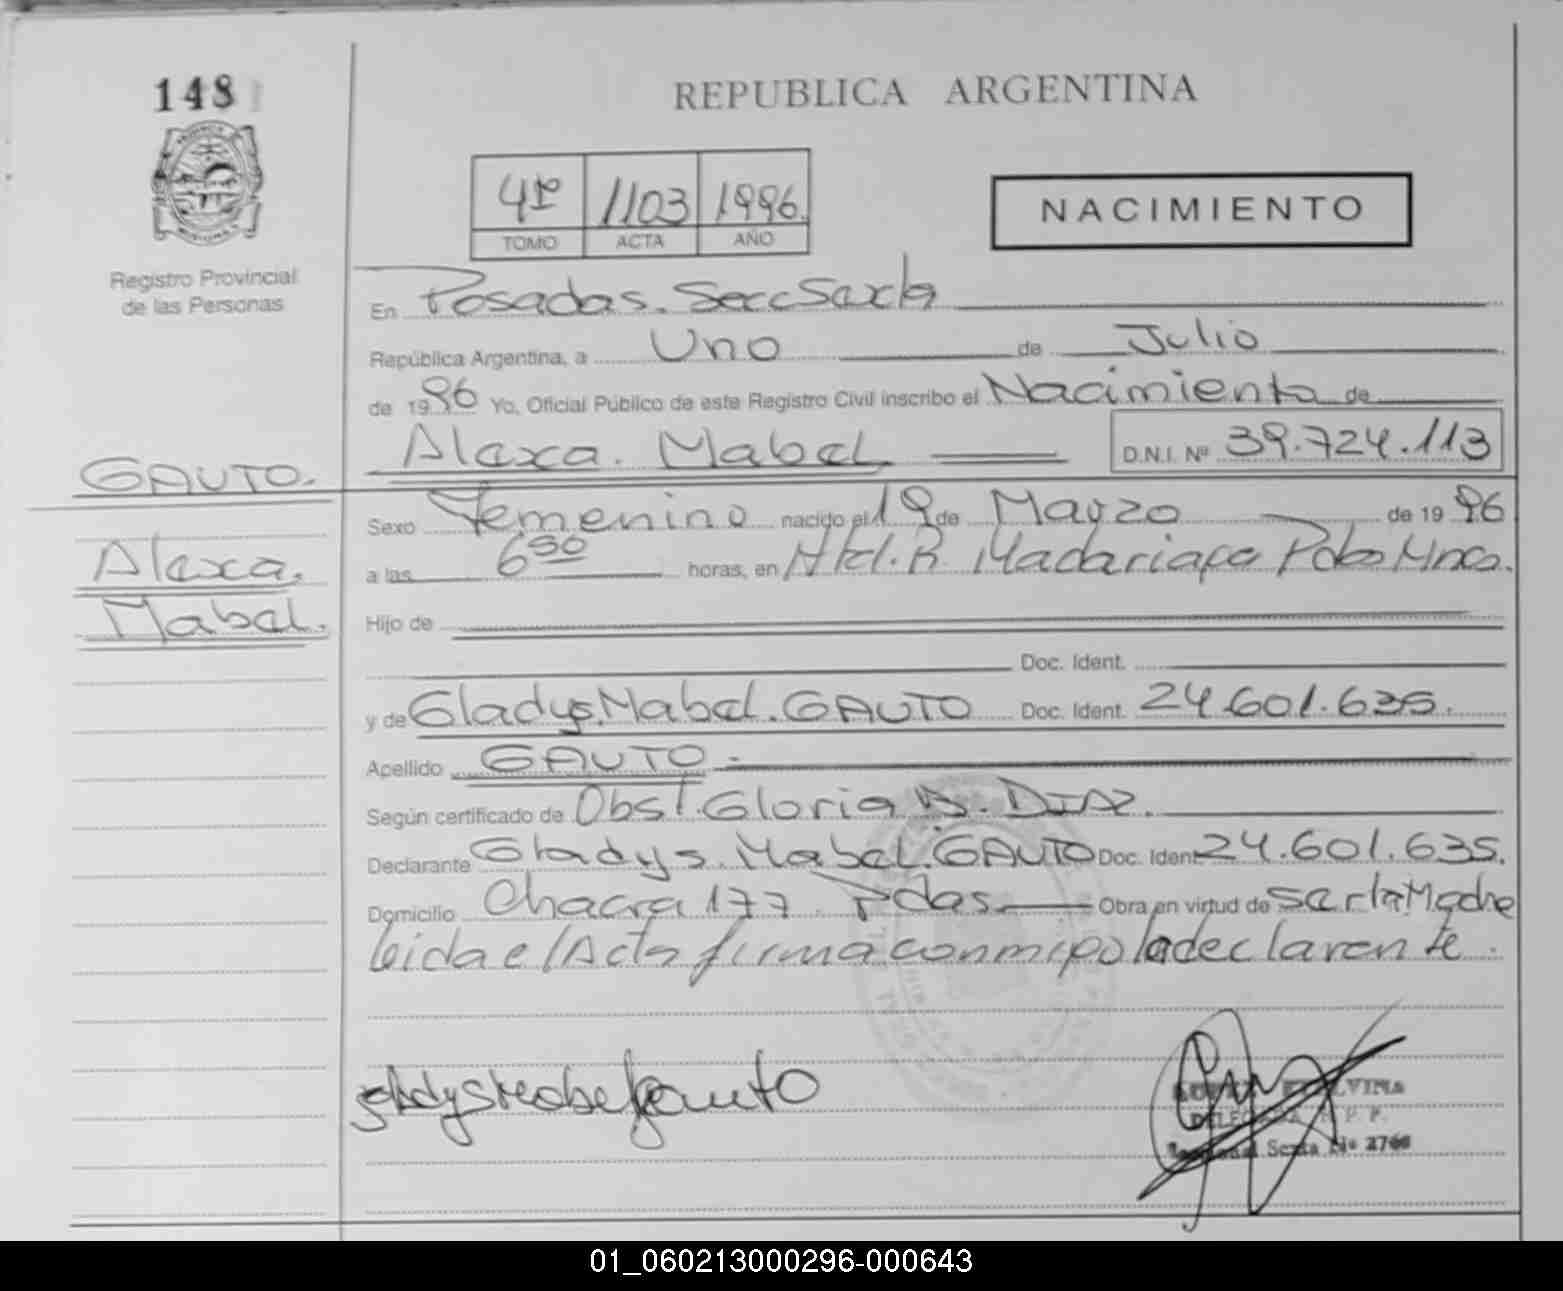 148
REPUBLICA ARGENTINA
4º 1103 1996
TOMO ACTA AÑO
NACIMIENTO
Registro Provincial
de las Personas
En Posadas. Secc Sexta
República Argentina, a Uno de Julio
de 1996 Yo, Oficial Público de este Registro Civil inscribo el Nacimiento de
Alexa. Mabel D.N.I. Nº 39.724.113
GAUTO.
Alexa.
Mabel.
Sexo Femenino nacido el 19 de Marzo de 1996
a las 6 30 horas, en Htl. R. Madariaga Pdas Mnes.
Hijo de
Doc. Ident.
y de Gladys. Mabel. GAUTO Doc. Ident. 24.601.635.
Apellido GAUTO.-
Según certificado de Obst. Gloria B. DIAZ.
Declarante Gladys. Mabel. GAUTO Doc. Ident 24.601.635.
Domicilio Chacra 177. Pdas. Obra en virtud de Ser la Madre
leida el Acta firma conmigo la declarante.
Gladys Mabel Gauto
VIMA
DELEGADA R. P. P.
Seccional Sexta Nº
01_060213000296-000643